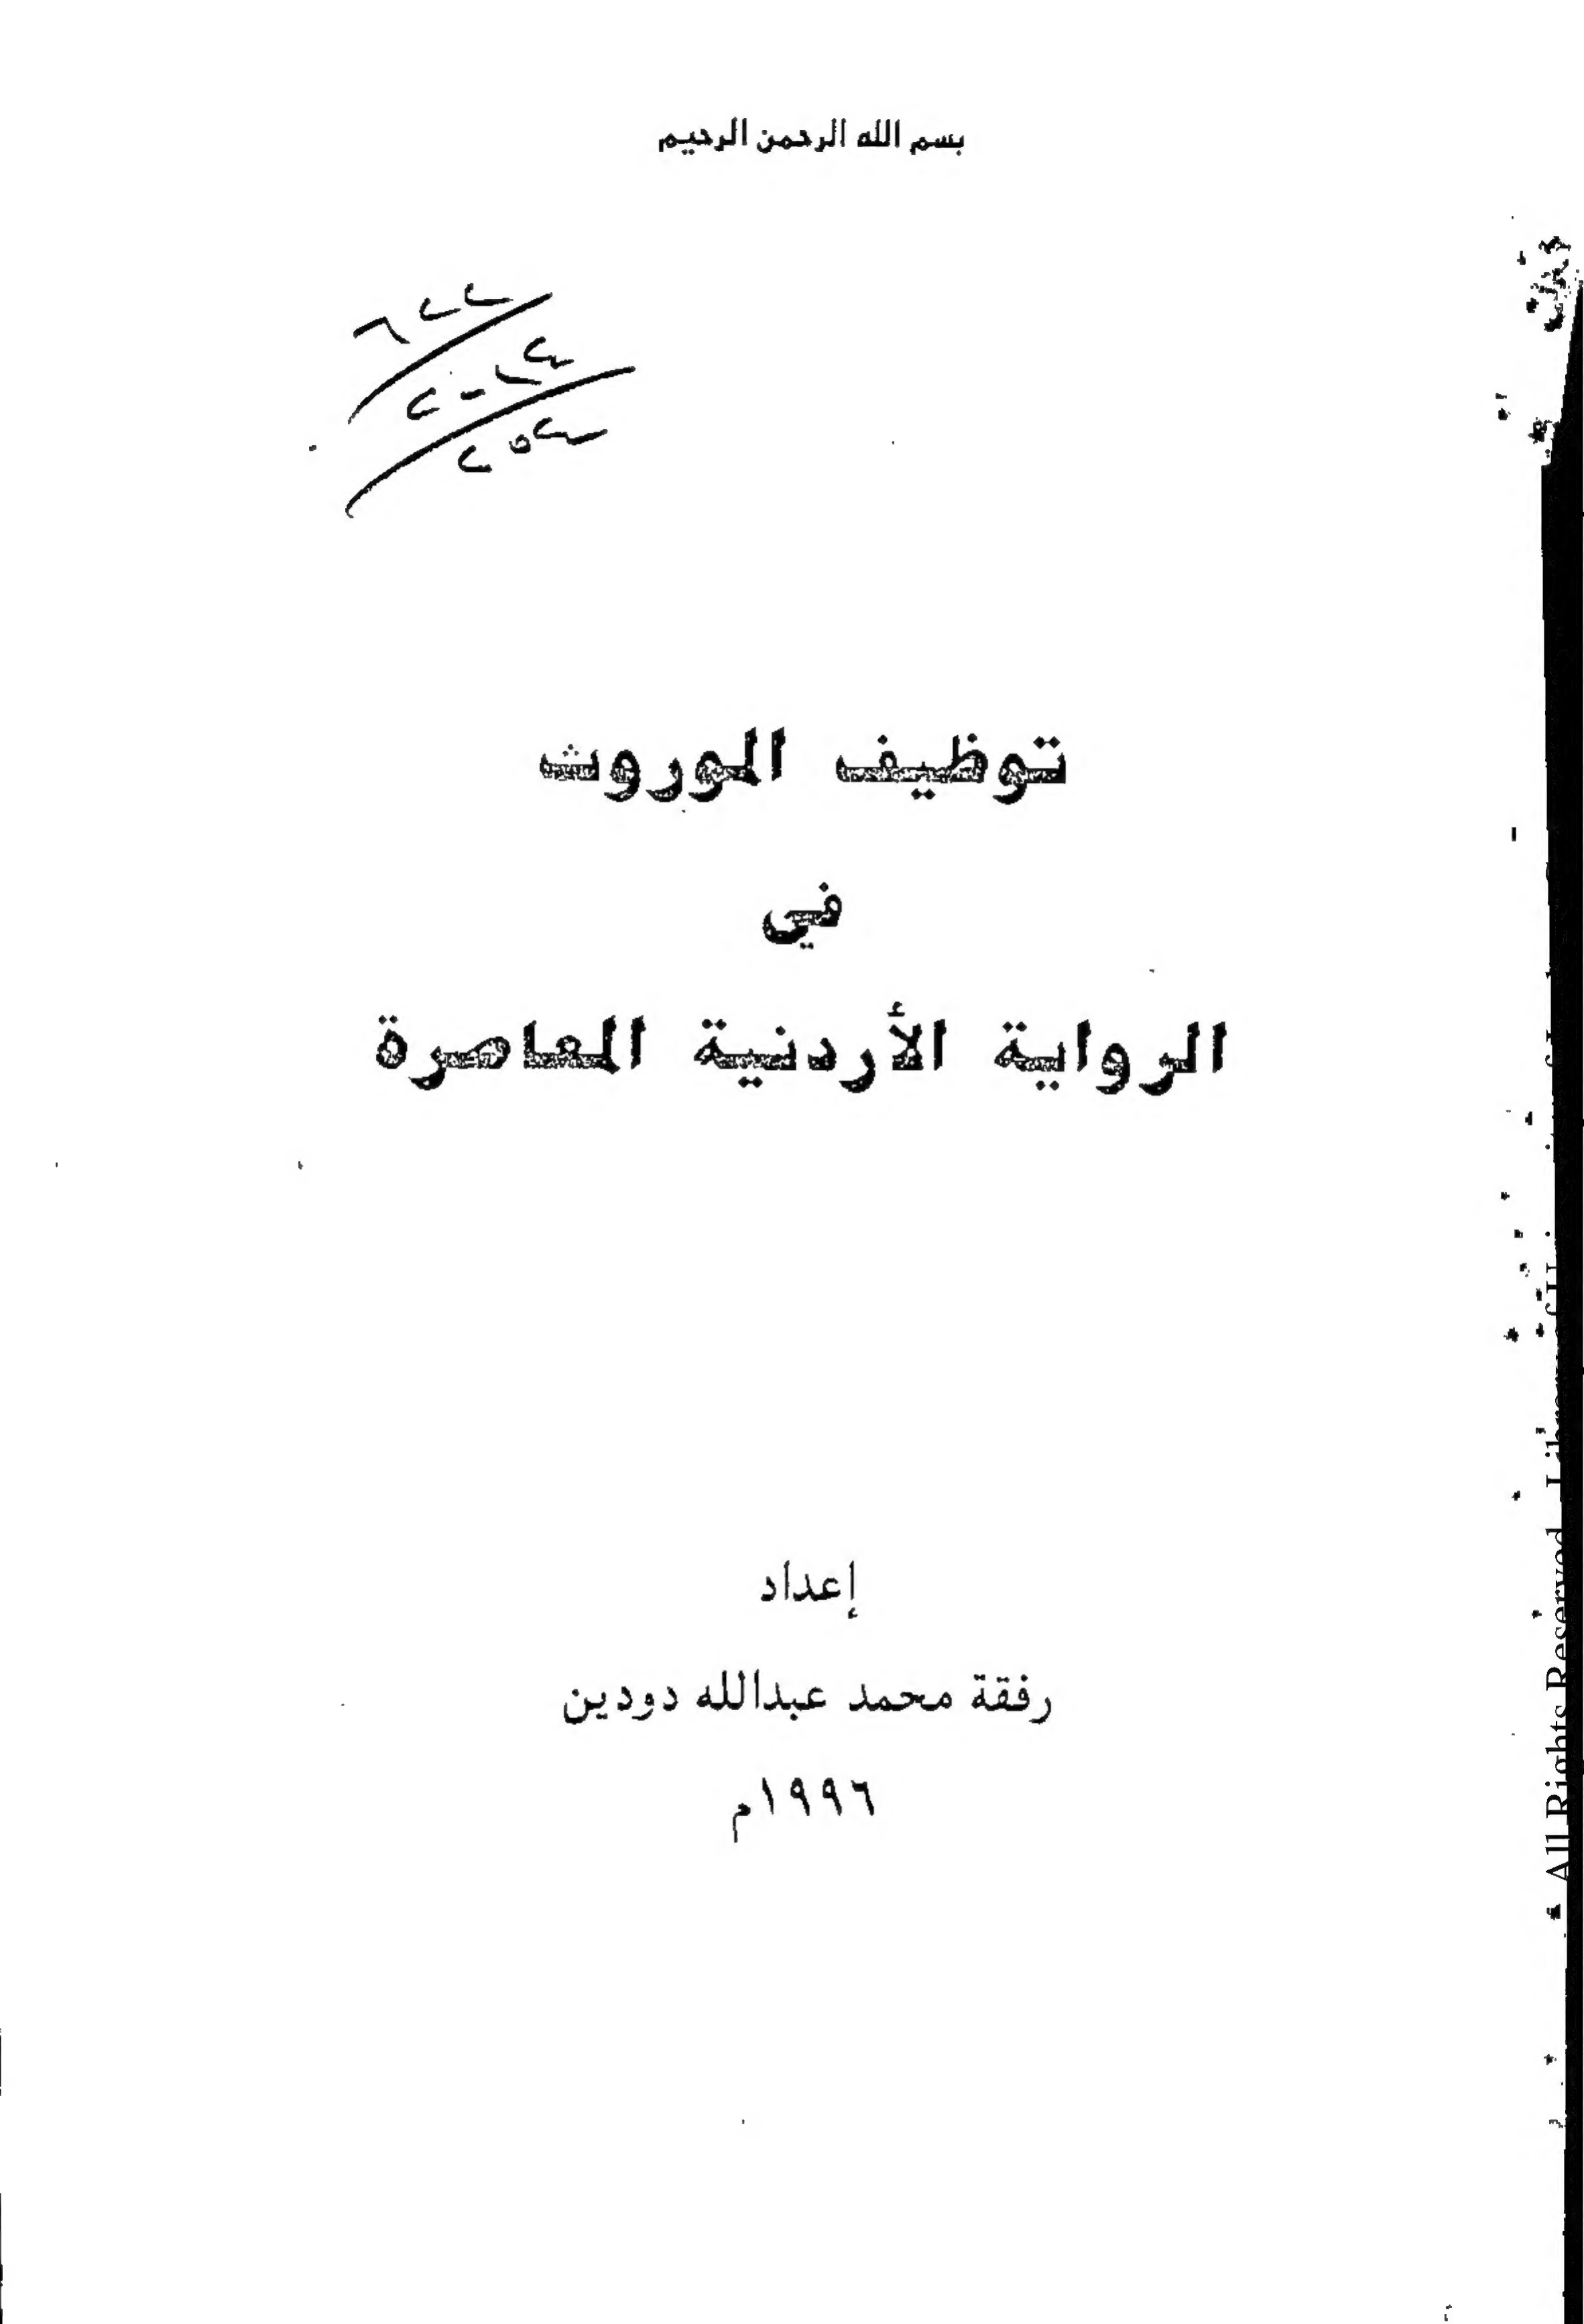 بسم الله الرحمن الرحيم
توظيف الموروث
في
الرواية الأردنية المعاصرة
إعداد
رفقة محمد عبدالله دودين
١٩٩٦م
All Rights Reserved